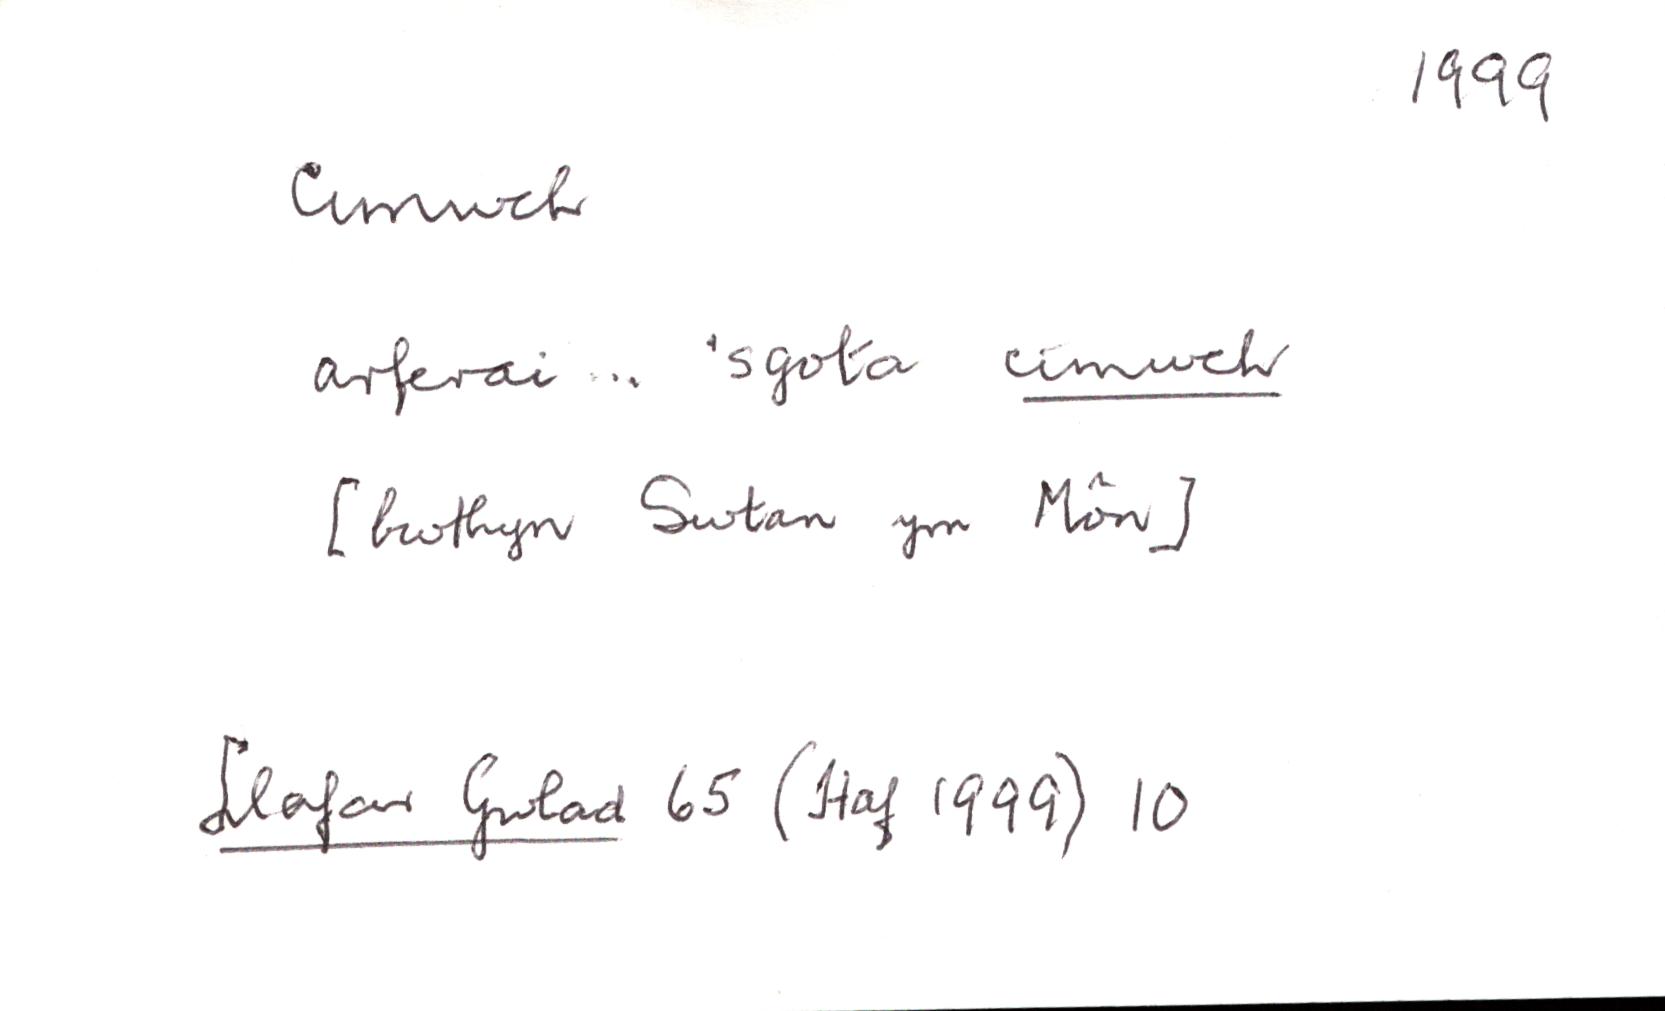 1999
cimwch
arferai ... 'sgota cimwch
[bwthyn Swtan ym Môn]
Llafar Gwlad 65 (Haf 1999) 10